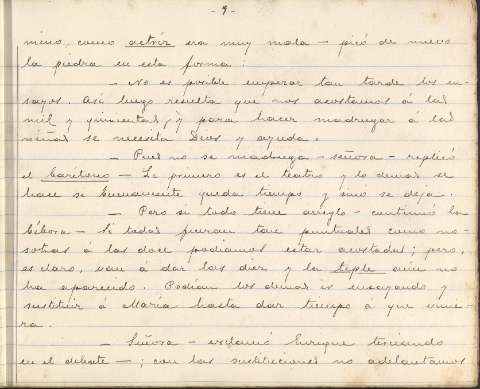 - 9 -
mino, como actriz era muy mala - picó de nuevo
la piedra en esta forma:
- No es posible empezar tan tarde los en-
sayos. Así luego resulta que nos acostamos á las
mil y quinientas; y para hacer madrugar á las
niñas se necesita Dios y ayuda.
- Pues no se madruga - señora - replicó
el baritono - Lo primero es el teatro y lo demás se
hace si buenamente queda tiempo y sinó se deja.
- Pero si todo tiene arreglo - continuó la
Víbora - Si todas fueran tan puntuales como no-
sotras á las doce podíamos estar acostadas; pero,
es claro, van á dar las diez y la tiple aún no
ha aparecido. Podían los demás ir ensayando y
sustituir á María hasta dar tiempo á que vinie-
ra.
- Señora - exclamó Enrique terciando
en el debate -; con las sustituciones no adelantamos